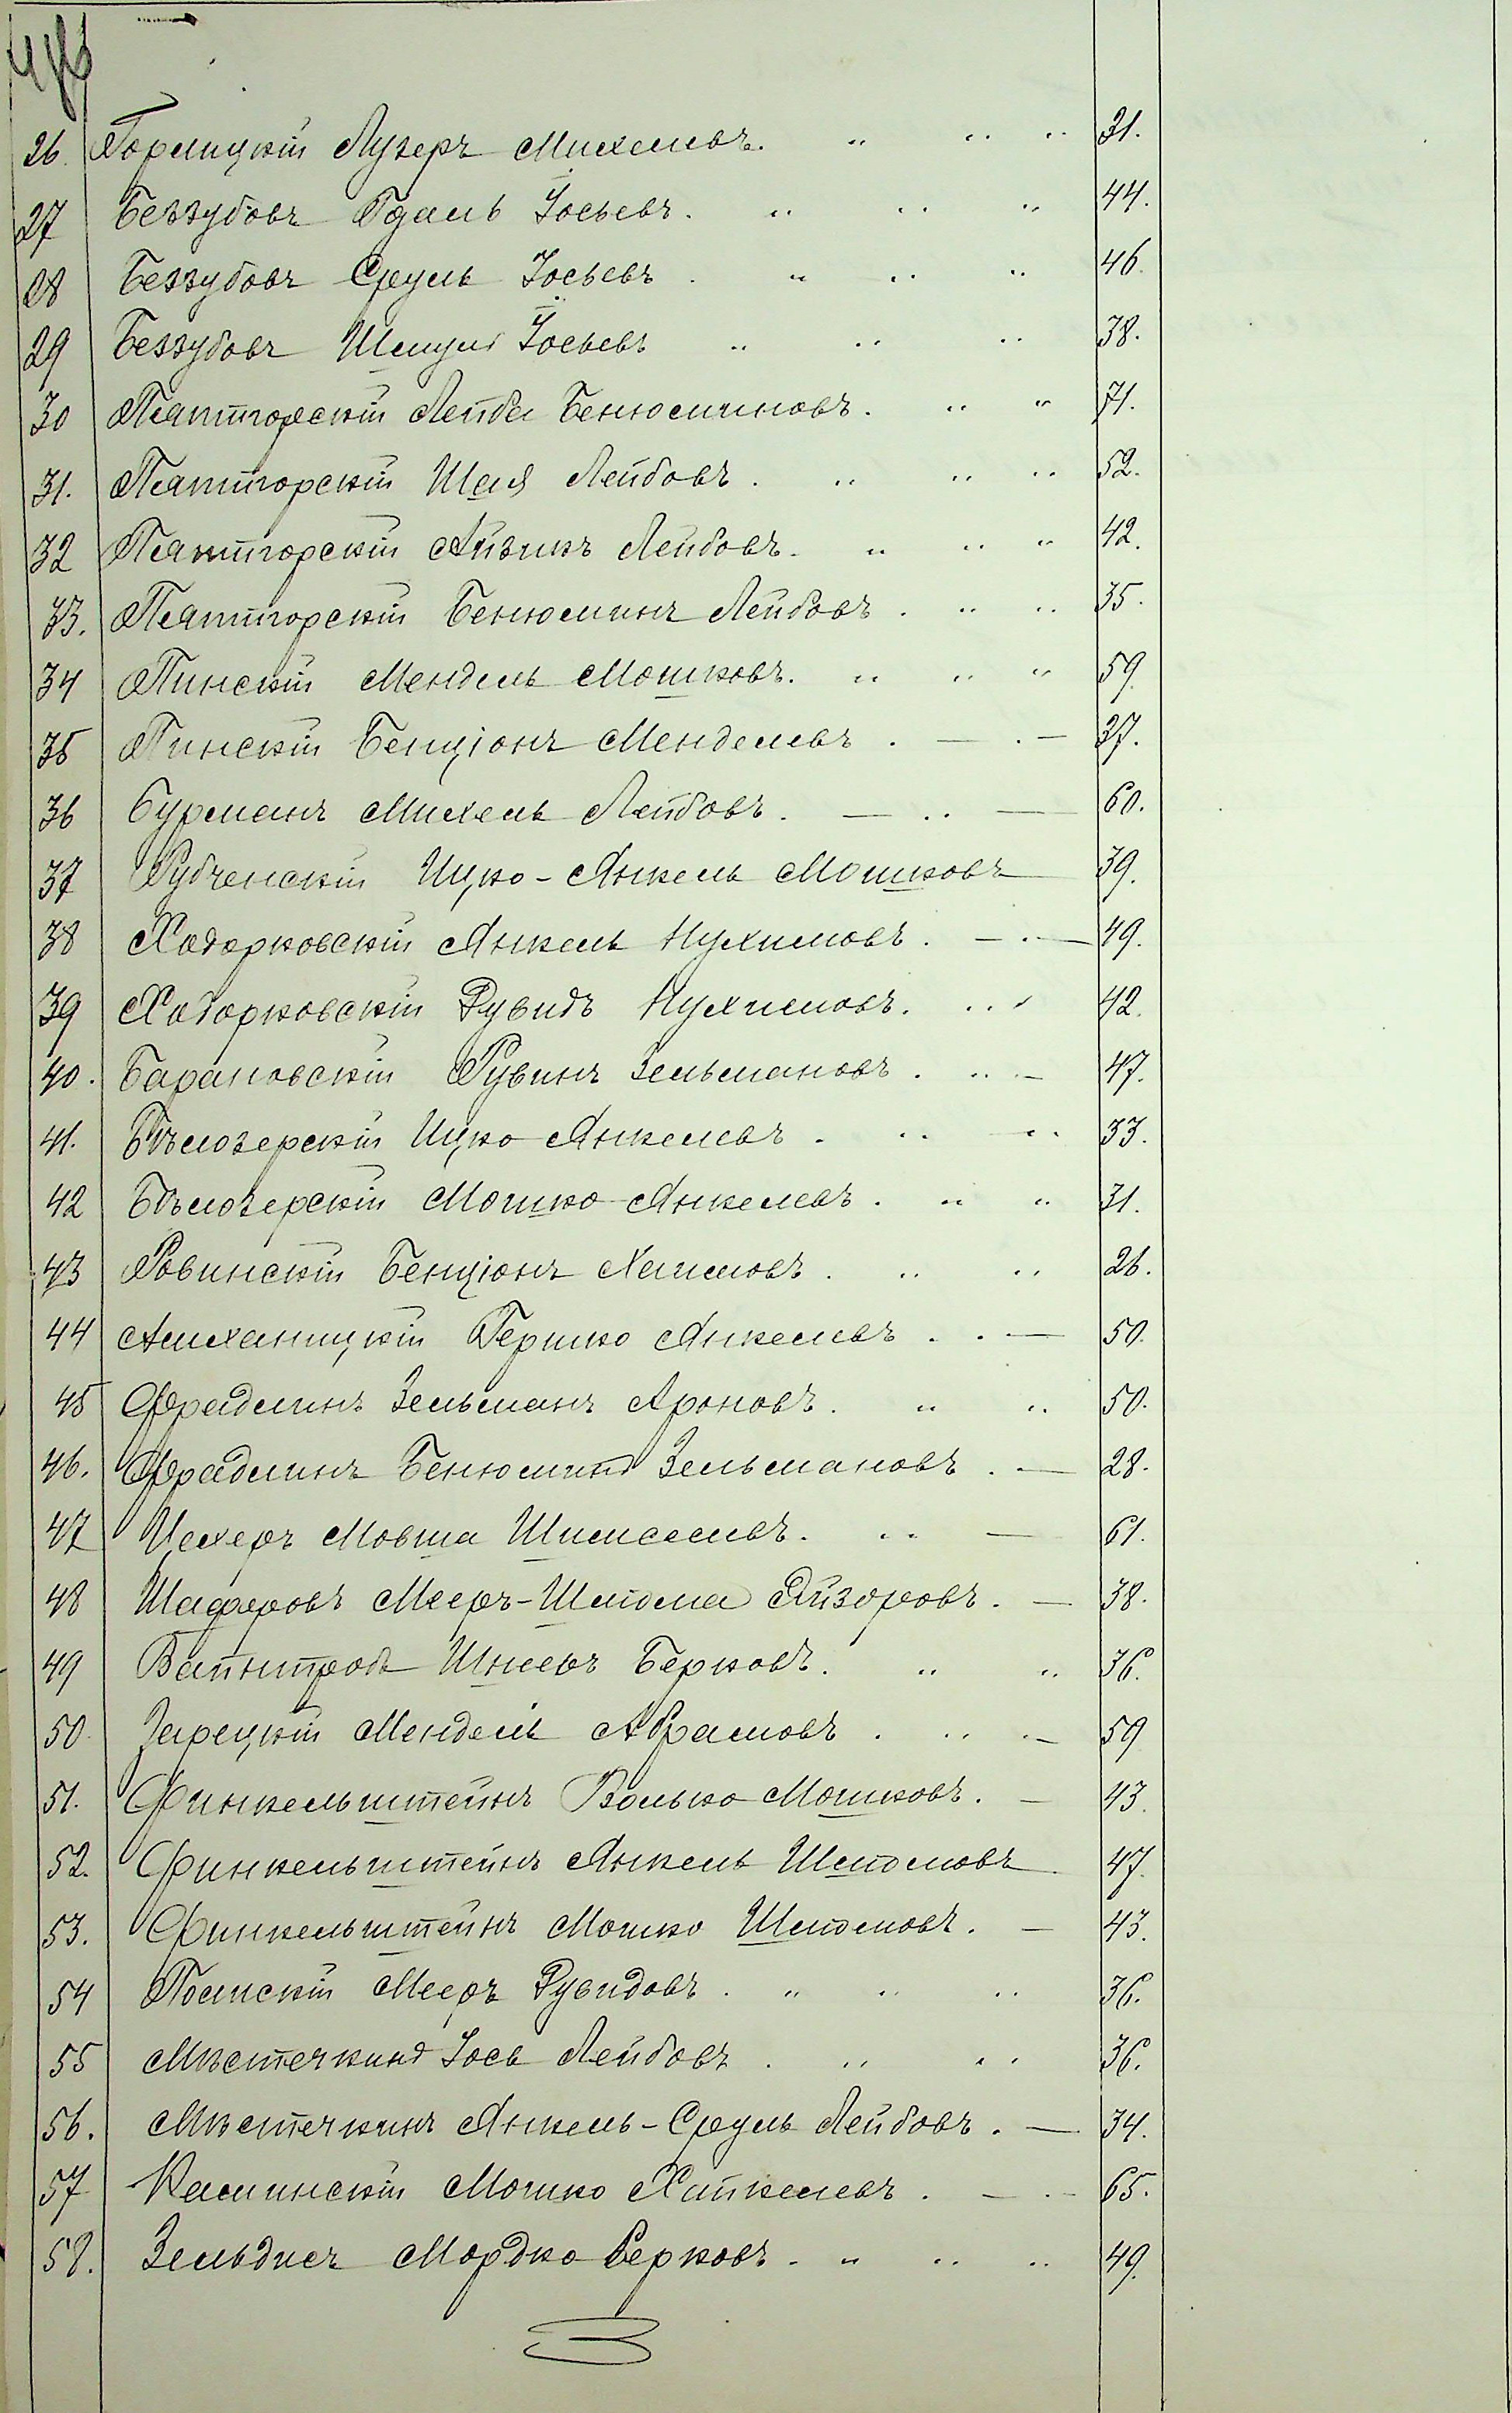 26. Горлицкій Лузеръ Михелевъ. " " " 31.
27 Беззубовъ Гдаль Іосьевъ. " " " 44.
28 Беззубовъ Сруль Іосьевъ. " " " 46.
29 Беззубовъ Шмуль Іосьевъ " " " 38.
30 Пятигорскій Лейба Бенюминовъ. " " 71.
31. Пятигорскій Шая Лейбовъ. " " " 52.
32 Пятигорскій Айзикъ Лейбовъ. " " " 42.
33. Пятигорскій Бенюминъ Лейбовъ. " " 35.
34 Пинскій Мендель Мошковъ. " " " 59.
35 Пинскій Бенціонъ Менделевъ. — . — 37.
36 Бурманъ Михель Лейбовъ. — " — 60.
37 Рубченскій Ицко-Янкель Мошковъ 39.
38 Ходорковскій Янкель Нухимовъ. — . — 49.
39 Ходорковскій Дувидъ Нухимовъ. " " 42.
40. Барановскій Рувинъ Зельмановъ. " — 47.
41. Бѣлозерскій Ицко Янкелевъ. " " 33.
42 Бѣлозерскій Мошко Янкелевъ. " " 31.
43 Ровинскій Бенціонъ Хаимовъ. " " 26.
44 Гершко Янкелевъ. . — 50.
45 Фрадминъ Зельманъ Ароновъ. " " 50.
46. Фрадминъ Бенюминъ Зельмановъ. — 28.
47 Мовша Шимселевъ. " — 61.
48 Шафировъ Мееръ-Шлома Айзоровъ. — 38.
49 Вайнтробъ Шнееръ Берковъ. " " 36.
50. Зарецкій Мендель Абрамовъ. " — 59
51. Финкельштейнъ Волько Мошковъ. — 43.
52. Финкельштейнъ Янкель Шломовъ. 47.
53. Финкельштейнъ Мошко Шломовъ. — 43.
54 Мееръ Дувидовъ. " " " 36.
55 Мѣстечкинъ Іось Лейбовъ. " " 36.
56. Мѣстечкинъ Янкель-Сруль Лейбовъ. — 34.
57 Каминскій Мошко Хайкелевъ. — . — 65.
58. Зельдисъ Мордко Берковъ. " " " 49.